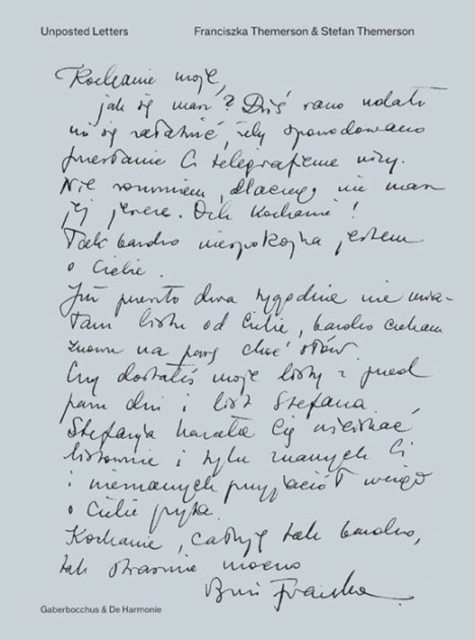 Unposted Letters Franciszka Themerson & Stefan Themerson
Kochanie moje,
jak się masz? Dziś rano udało
mi się załatwić, żeby spowodowano
przesłanie Ci telegraficzne wizy.
Nie rozumiem, dlaczego nie masz
jej jeszcze. Och Kochanie!
Tak bardzo niespokojna jestem
o Ciebie.
Już prawie dwa tygodnie nie mia-
łam listu od Ciebie, bardzo czekam
znowu na parę choć słów.
Czy dostałeś moje listy z przed
paru dni i list Stefana.
Stefania kazała Cię uściskać
listownie i tylu znanych Ci
i nieznanych przyjaciół wciąż
o Ciebie pyta.
Kochanie, całuję tak bardzo,
tak strasznie mocno
Franka
Gaberbocchus & De Harmonie